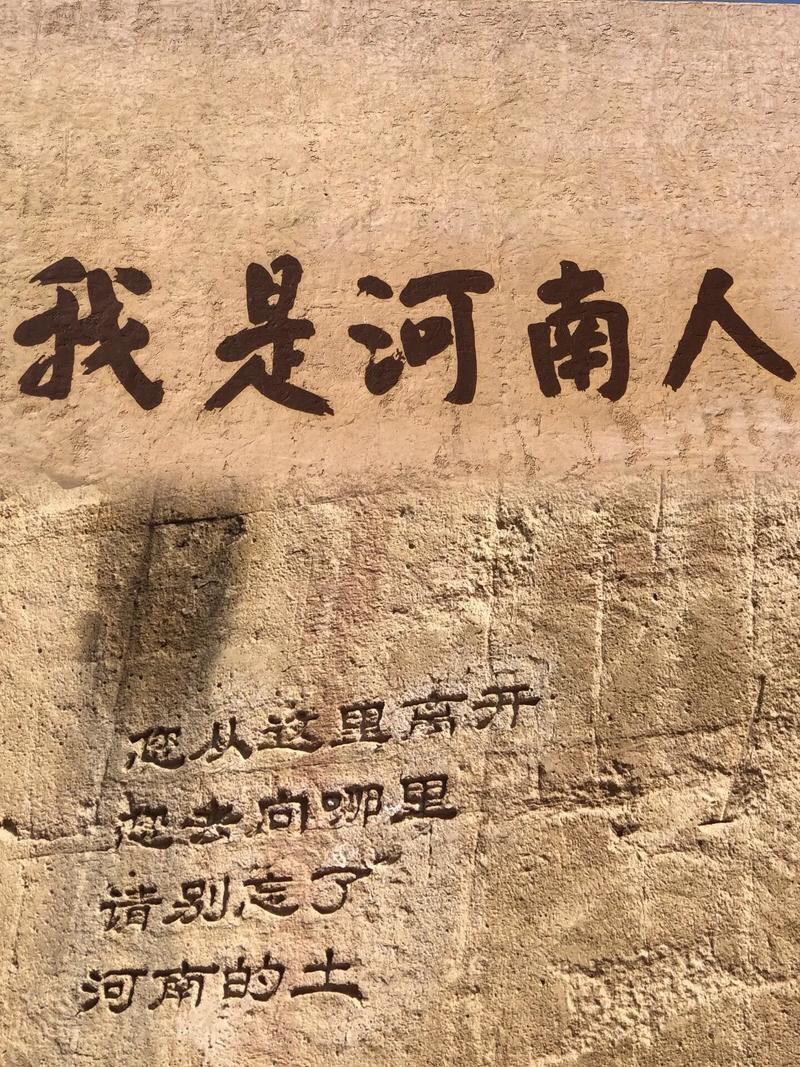 我是河南人
您从这里离开
您去向哪里
请别忘了
河南的土